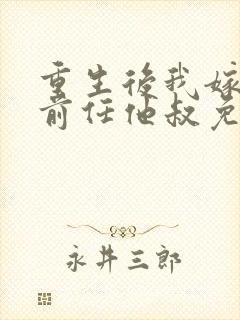 重生後我嫁
前任他叔免
永井三郎